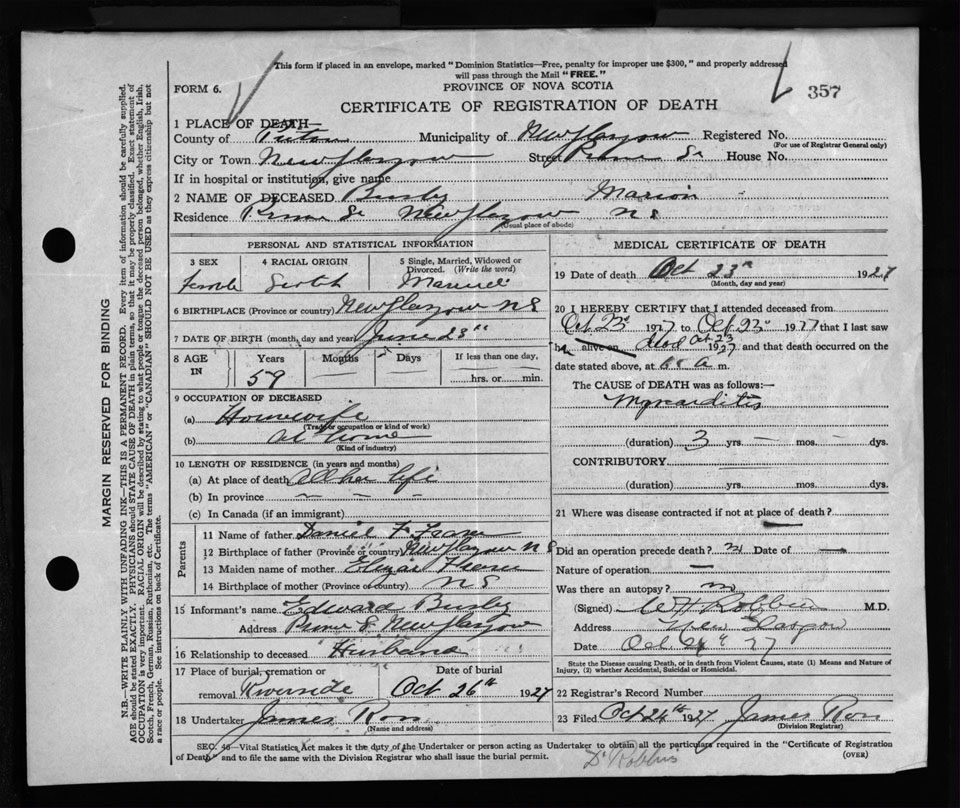 This form if placed in an envelope, marked "Dominion Statistics—Free, penalty for improper use $300," and properly addressed
will pass through the Mail "FREE."
FORM 6.
PROVINCE OF NOVA SCOTIA
357
CERTIFICATE OF REGISTRATION OF DEATH
1 PLACE OF DEATH—
County of Pictou Municipality of New Glasgow Registered No.
(For use of Registrar General only)
City or Town New Glasgow Street House No.
If in hospital or institution, give name
2 NAME OF DECEASED Busby Marion
Residence New Glasgow N S
(Usual place of abode)
PERSONAL AND STATISTICAL INFORMATION
3 SEX 4 RACIAL ORIGIN 5 Single, Married, Widowed or Divorced. (Write the word)
Female Scotch Married
6 BIRTHPLACE (Province or country) New Glasgow N S
7 DATE OF BIRTH (month, day and year) June 23rd
8 AGE IN Years Months Days If less than one day,
59 hrs. or min.
9 OCCUPATION OF DECEASED
(a) Housewife
(Trade or occupation or kind of work)
(b) At home
(Kind of industry)
10 LENGTH OF RESIDENCE (in years and months)
(a) At place of death All her life
(b) In province — — —
(c) In Canada (if an immigrant)
Parents
11 Name of father Daniel F Fraser
12 Birthplace of father (Province or country) New Glasgow N S
13 Maiden name of mother Eliza Fraser
14 Birthplace of mother (Province or country) N S
15 Informant's name Edward Busby
Address New Glasgow
16 Relationship to deceased Husband
17 Place of burial, cremation or Date of burial
removal Riverside Oct 26th 1927
18 Undertaker James Ross
(Name and address)
MEDICAL CERTIFICATE OF DEATH
19 Date of death Oct 23rd 1927
(Month, day and year)
20 I HEREBY CERTIFY that I attended deceased from
Oct 23rd 1927 to Oct 23rd 1927 that I last saw
h alive on Oct 23 1927 and that death occurred on the
date stated above, at a m.
The CAUSE of DEATH was as follows:—
Myocarditis
(duration) 3 yrs. — mos. — dys.
CONTRIBUTORY —
(duration) yrs. mos. dys.
21 Where was disease contracted if not at place of death?
—
Did an operation precede death? Date of —
Nature of operation —
Was there an autopsy? no
(Signed) M.D.
Address New Glasgow
Date Oct 27
State the Disease causing Death, or in death from Violent Causes, state (1) Means and Nature of
Injury, (2) whether Accidental, Suicidal or Homicidal.
22 Registrar's Record Number
23 Filed Oct 26th 1927 James Ross
(Division Registrar)
SEC. 46—Vital Statistics Act makes it the duty of the Undertaker or person acting as Undertaker to obtain all the particulars required in the "Certificate of Registration
of Death" and to file the same with the Division Registrar who shall issue the burial permit.
(OVER)
Dr Robbins
MARGIN RESERVED FOR BINDING
N.B.—WRITE PLAINLY WITH UNFADING INK—THIS IS A PERMANENT RECORD. Every item of information should be carefully supplied.
AGE should be stated EXACTLY. PHYSICIANS should STATE CAUSE OF DEATH in plain terms, so that it may be properly classified. Exact statement of
OCCUPATION is very important. RACIAL ORIGIN will be described by stating to what people or tongue the deceased person belonged, whether English, Irish,
Scotch, French, German, Russian, Ruthenian, etc. The terms "AMERICAN" or "CANADIAN" SHOULD NOT BE USED as they express citizenship but not
a race or people. See instructions on back of Certificate.